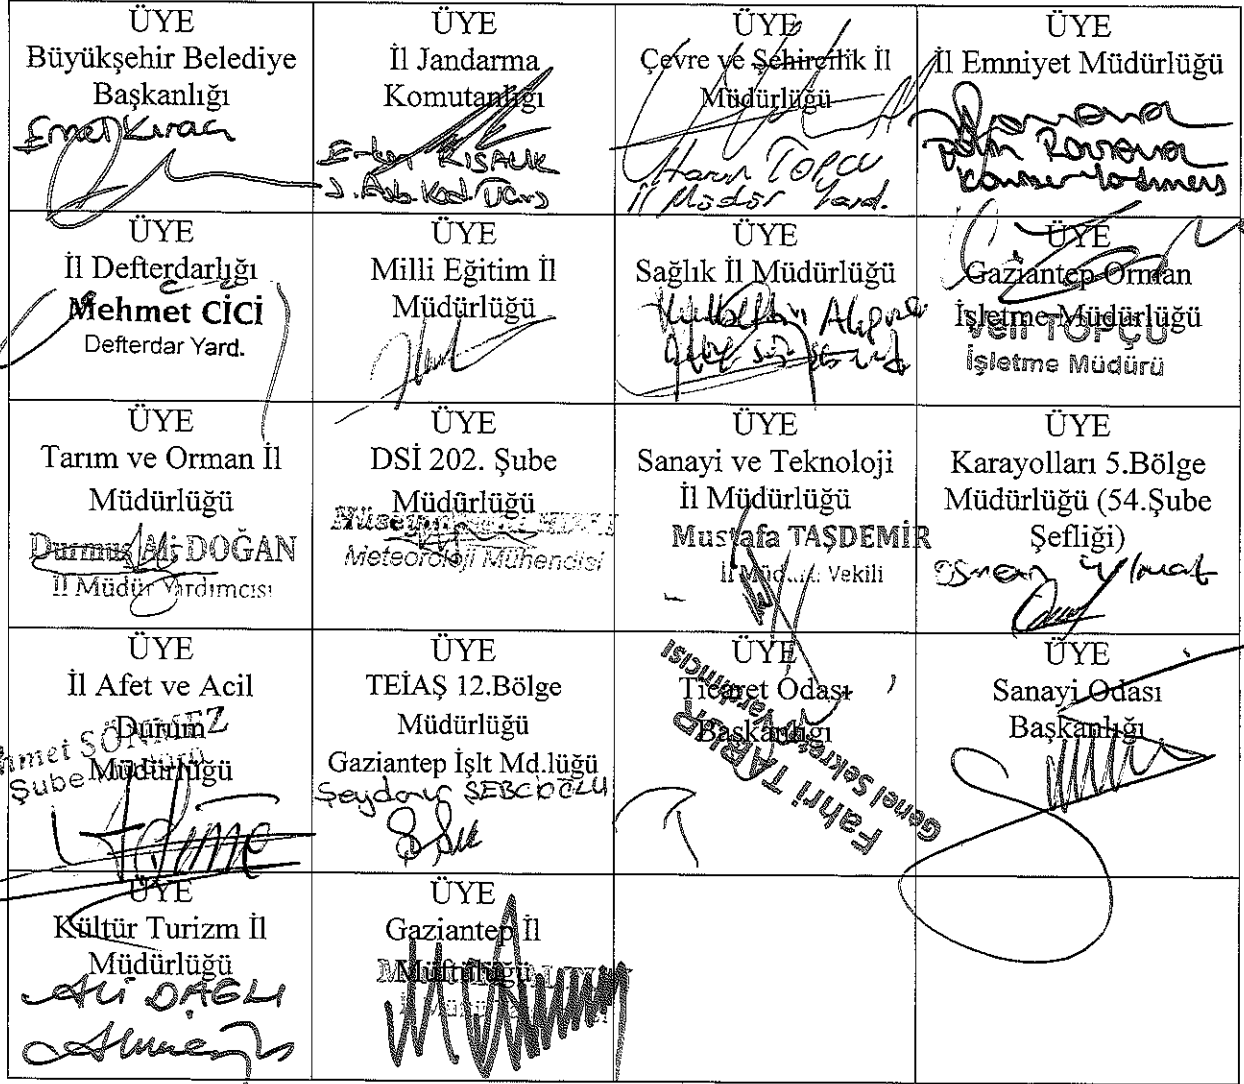 ÜYE
Büyükşehir Belediye
Başkanlığı
ÜYE
İl Jandarma
Komutanlığı
KISALIK
ÜYE
Çevre ve Şehircilik İl
Müdürlüğü
Harun TOPCU
İl Müdür Yard.
ÜYE
İl Emniyet Müdürlüğü
ÜYE
İl Defterdarlığı
Mehmet CİCİ
Defterdar Yard.
ÜYE
Milli Eğitim İl
Müdürlüğü
ÜYE
Sağlık İl Müdürlüğü
ÜYE
Gaziantep Orman
İşletme Müdürlüğü
Veli TOPÇU
İşletme Müdürü
ÜYE
Tarım ve Orman İl
Müdürlüğü
Durmuş Ali DOĞAN
İl Müdür Yardımcısı
ÜYE
DSİ 202. Şube
Müdürlüğü
Meteoroloji Mühendisi
ÜYE
Sanayi ve Teknoloji
İl Müdürlüğü
Mustafa TAŞDEMİR
Vekili
ÜYE
Karayolları 5.Bölge
Müdürlüğü (54.Şube
Şefliği)
Osman Yılmaz
ÜYE
İl Afet ve Acil
Durum
Müdürlüğü
SÖNMEZ
Şube
ÜYE
TEİAŞ 12.Bölge
Müdürlüğü
Gaziantep İşlt Md.lüğü
ÜYE
Ticaret Odası
Başkanlığı
Fahri TABUR
Genel Sekreter Yardımcısı
ÜYE
Sanayi Odası
Başkanlığı
ÜYE
Kültür Turizm İl
Müdürlüğü
ALİ DAĞLI
ÜYE
Gaziantep İl
Müftülüğü